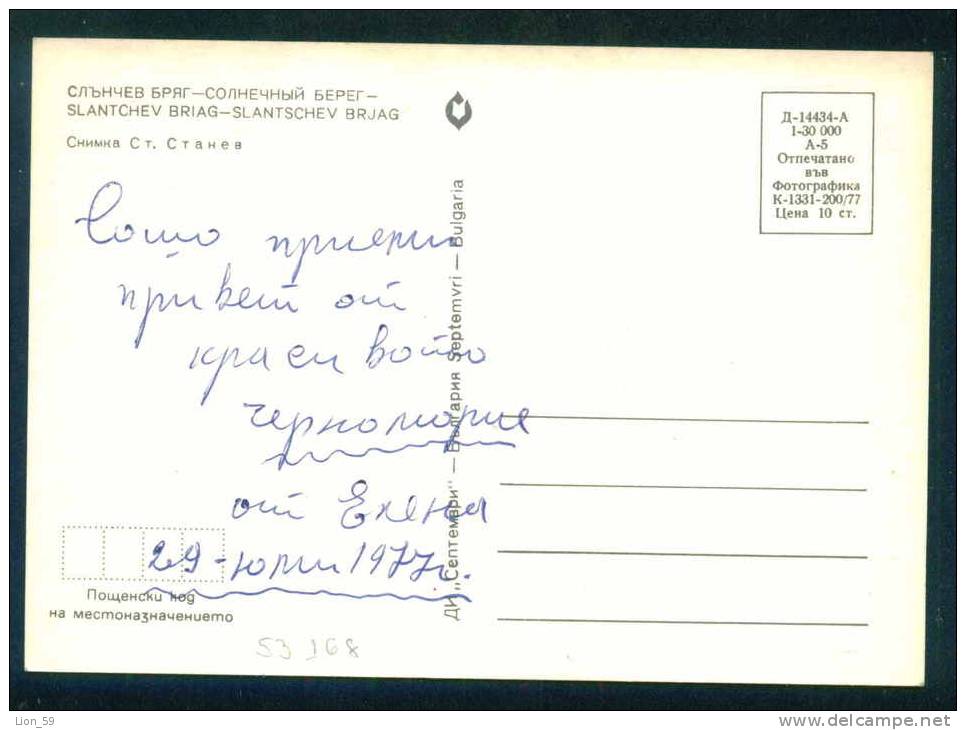 СЛЪНЧЕВ БРЯГ—СОЛНЕЧНЫЙ БЕРЕГ—
SLANTCHEV BRIAG—SLANTSCHEV BRJAG
Снимка Ст. Станев
Д-14434-А
1-30 000
А-5
Отпечатано
във
Фотографика
К-1331-200/77
Цена 10 ст.
приеми
привет от
красивото
черноморие
от Елена
29-юли 1977г.
ДИ „Септември" — България Septemvri — Bulgaria
Пощенски код
на местоназначението
53 168
Lion_59
www.delcampe.net